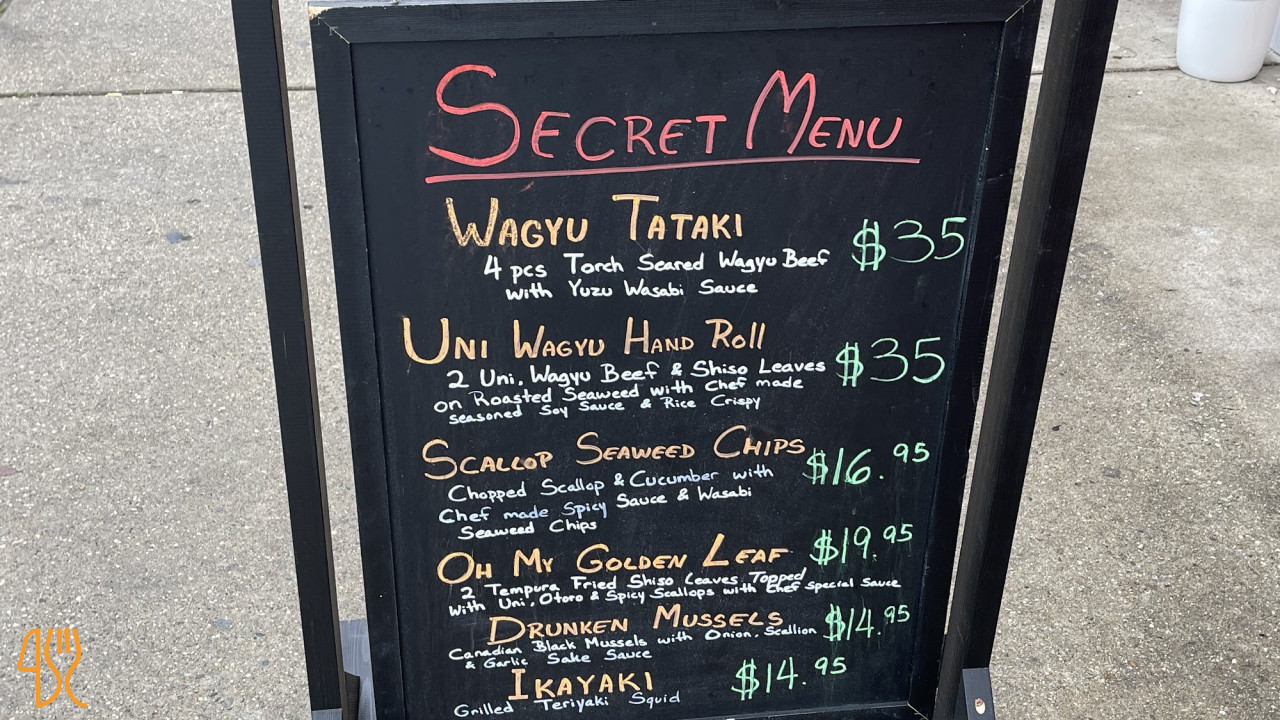 SECRET MENU
WAGYU TATAKI $35
4 pcs Torch Seared Wagyu Beef
with Yuzu Wasabi Sauce
UNI WAGYU HAND ROLL $35
2 Uni, Wagyu Beef & Shiso Leaves
on Roasted Seaweed with Chef made
seasoned Soy Sauce & Rice Crispy
SCALLOP SEAWEED CHIPS $16.95
Chopped Scallop & Cucumber with
Chef made Spicy Sauce & Wasabi
Seaweed Chips
OH MY GOLDEN LEAF $19.95
2 Tempura Fried Shiso Leaves Topped
with Uni, Otoro & Spicy Scallops with Chef Special Sauce
DRUNKEN MUSSELS $14.95
Canadian Black Mussels with Onion, Scallion
& Garlic Sake Sauce
IKAYAKI $14.95
Grilled Teriyaki Squid